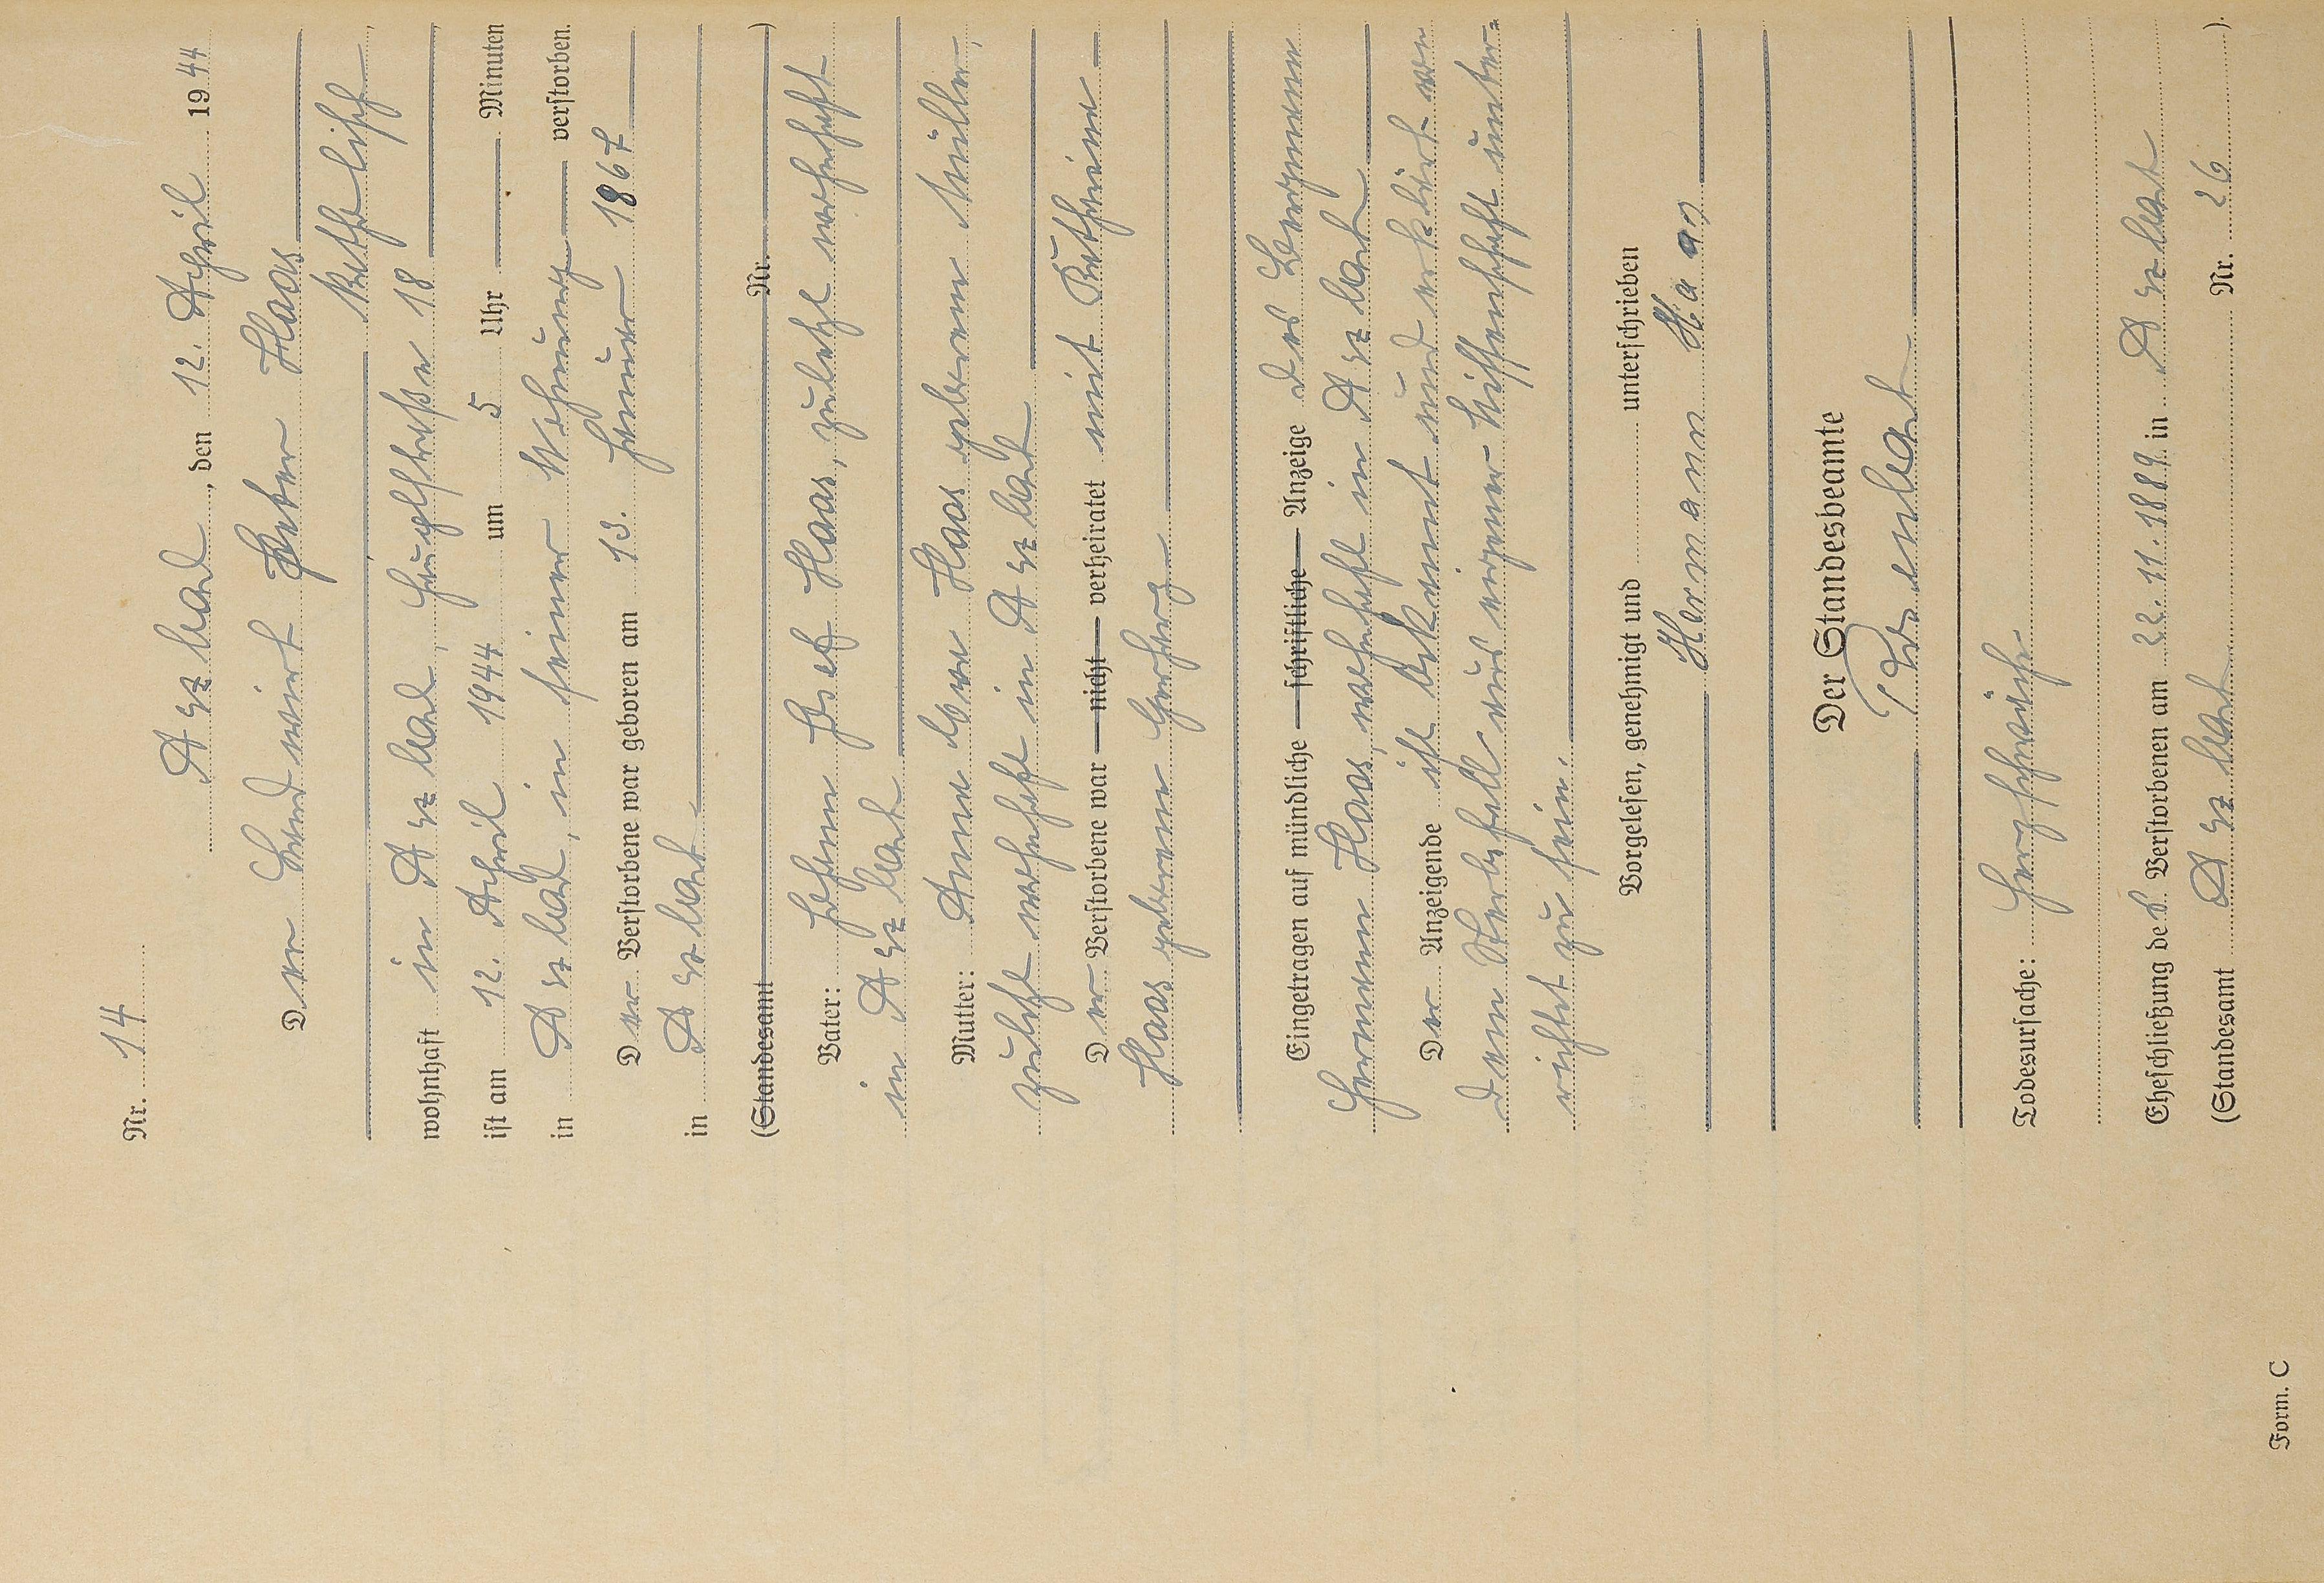 Nr. 14
Arzbach, den 12. April 1944
Der Landwirt Peter Haas
katholisch
wohnhaft in Arzbach, Hauptstraße 18
ist am 12. April 1944 um 5 Uhr Minuten
in Arzbach, in seiner Wohnung verstorben.
Der Verstorbene war geboren am 13. Januar 1867
in Arzbach
(Standesamt Nr. )
Vater: Johann Josef Haas, zuletzt wohnhaft
in Arzbach
Mutter: Anna Haas geborene Müller,
zuletzt wohnhaft in Arzbach
Der Verstorbene war nicht verheiratet mit Katharina
Haas geborene
Eingetragen auf mündliche schriftliche Anzeige des Bergmann
Hermann Haas, wohnhaft in Arzbach
Der Anzeigende ist bekannt und erklärt von
dem Sterbefall aus eigener Wissenschaft unter-
richtet zu sein.
Vorgelesen, genehmigt und unterschrieben
Hermann Haas
Der Standesbeamte
Todesursache: Herzschwäche
Eheschließung des Verstorbenen am 22.11.1889 in Arzbach
(Standesamt Arzbach Nr. 26 ).
Form. C